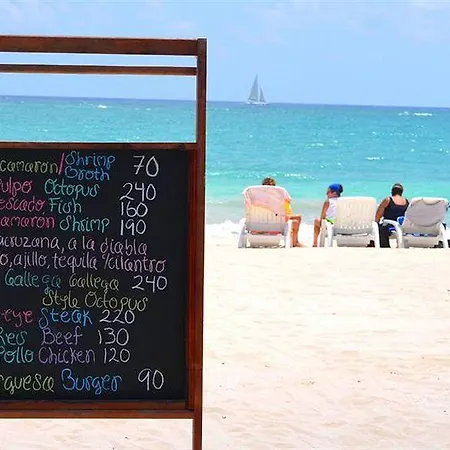 camaron/Shrimp Broth 70
Pulpo Octopus 240
Pescado Fish 160
Camaron Shrimp 190
acruzana, a la diabla
o, ajillo, tequila y cilantro
Gallega Gallega 240
Style Octopus
eye Steak 220
Res Beef 130
Pollo Chicken 120
rguesa Burger 90